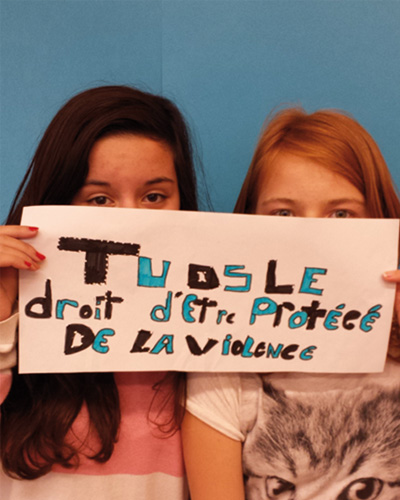 TU aS LE
droit d'Etre ProtéGé
DE LA VIOLENCE